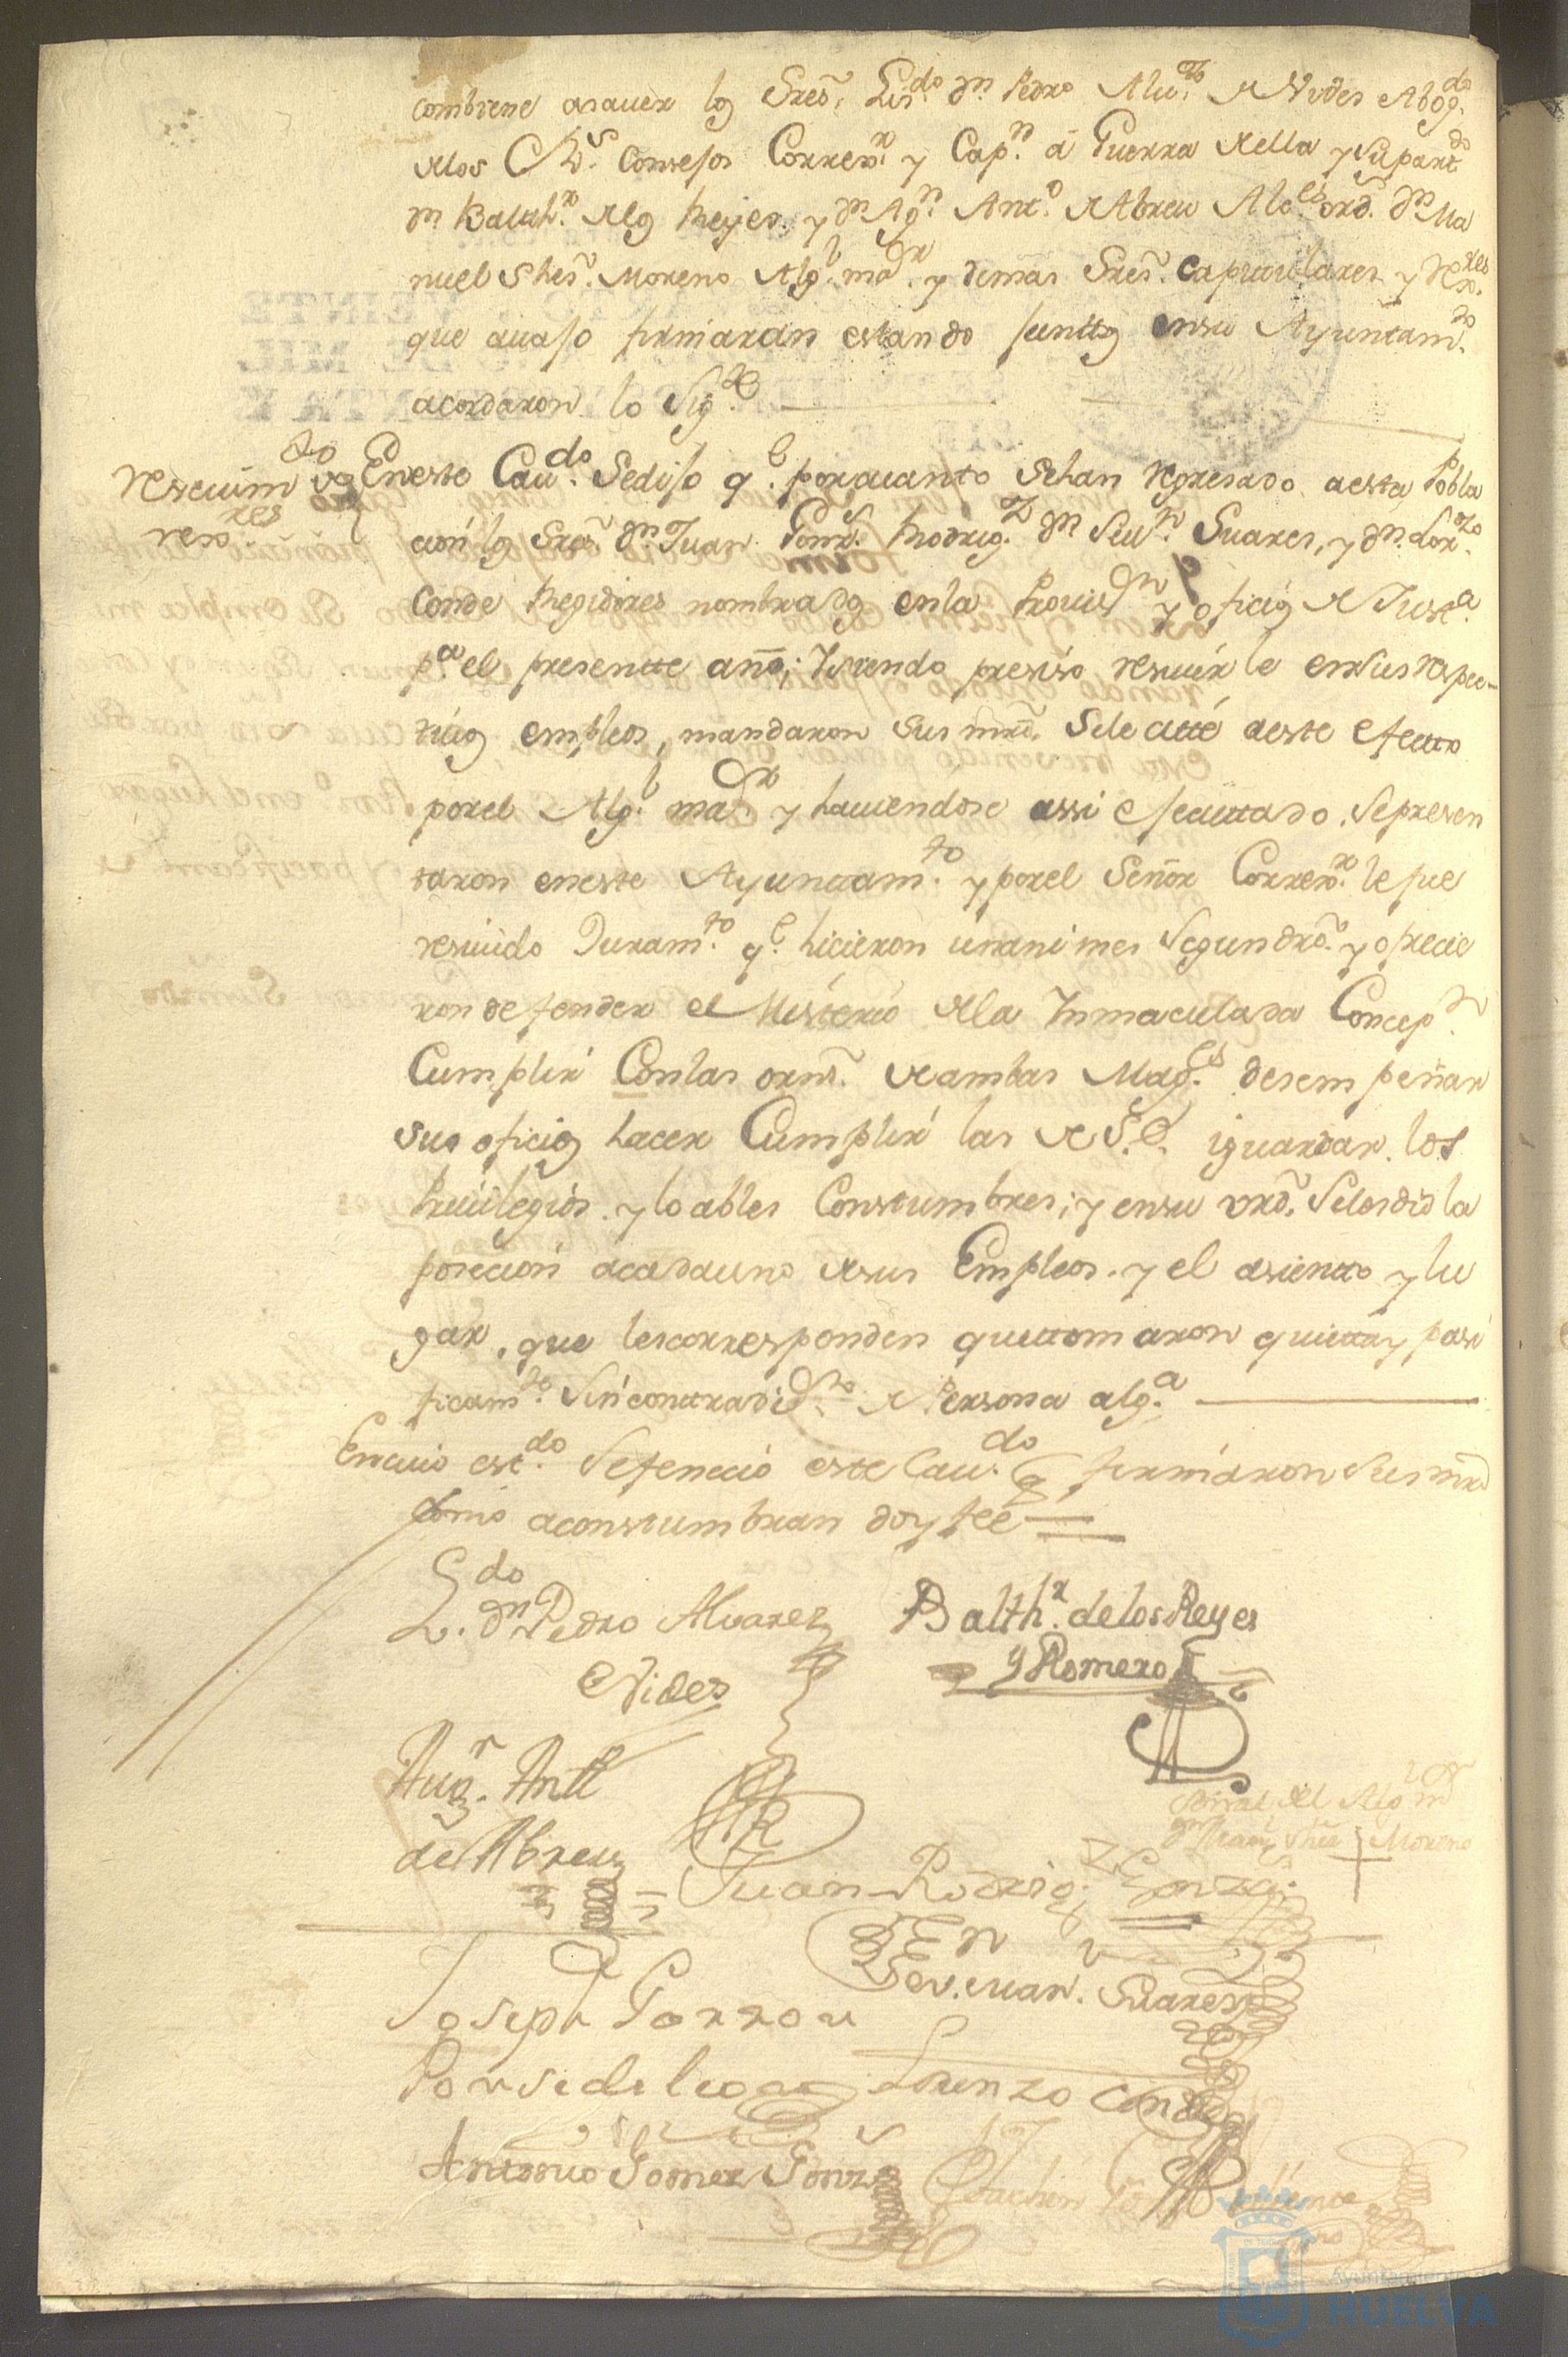 combiene asauer los Sres. Lizdo. Dn. Pedro Aluz. de Vides Abogdo.
de los Rs. Consejos Correxr. y Capn. á Guerra de ella y su partdo.
Dn. Balthr. de los Reyes, y Dn. Agn. Anto. de Abreu Alces. ord. Dn. Ma
nuel Shes. Moreno Algl. mador. y demas Sres. capitulares y Rexres.
que auajo firmaran estando junttos en su Ayuntamto.
acordaron lo sigte.
resceuimto. de los
rexres.
En este Caudo. se dijo qe. por quanto se han regresado a esta Pobla
ción los Sres. Dn. Juan Gonzs. Rodrigz. Dn. Seun. Suares, y Dn. Lorzo.
Conde Regidores nombrados en la Provisión y oficios de Justa.
pa. el presentte año; y siendo presiso resevirle en sus respec-
tiuos empleos, mandaron sus mrds. se le citte a este efectto
por el Algl. mador. y hauiendose assi ejecuttado, se presen
taron en este Ayunttamto. y por el Señor Correxr. le fue
resiuido Juramto. qe. hicieron unanimes segun dro. y ofrecie
ron defender el Misterio de la Inmaculada Concepn.
Cumplir con las orns. de ambas Mages. desempeñar
sus oficios hacer Cumplir las de S.E. i guardar los
Priuilegios y loables Constumbres; y en su vrd. se les dio la
poseción a cada uno de sus Empleos y el asientto y lu
gar, que les corresponden que ttomaron quietta y pasi
ficamte. sin contradicion de Persona alga.
En cuio estdo. se feneció este Caudo. q firmaron sus mrds
como aconstumbran doy feé
Ldo. dn Pedro Alvarez
Vides
Balthr. de los Reyes
y Romero
Augn. Antt
de Abreu
Señal del Algl. mor
Dn Manl Shes Moreno
Juan Rodrigz Gonzs.
Dn
Sev. Juan. Suares
Joseph Garrou
Ponse de leon
Lorenzo Conde
Antonio Gomez Gonzs
Joachin
Ayuntamiento de
HUELVA